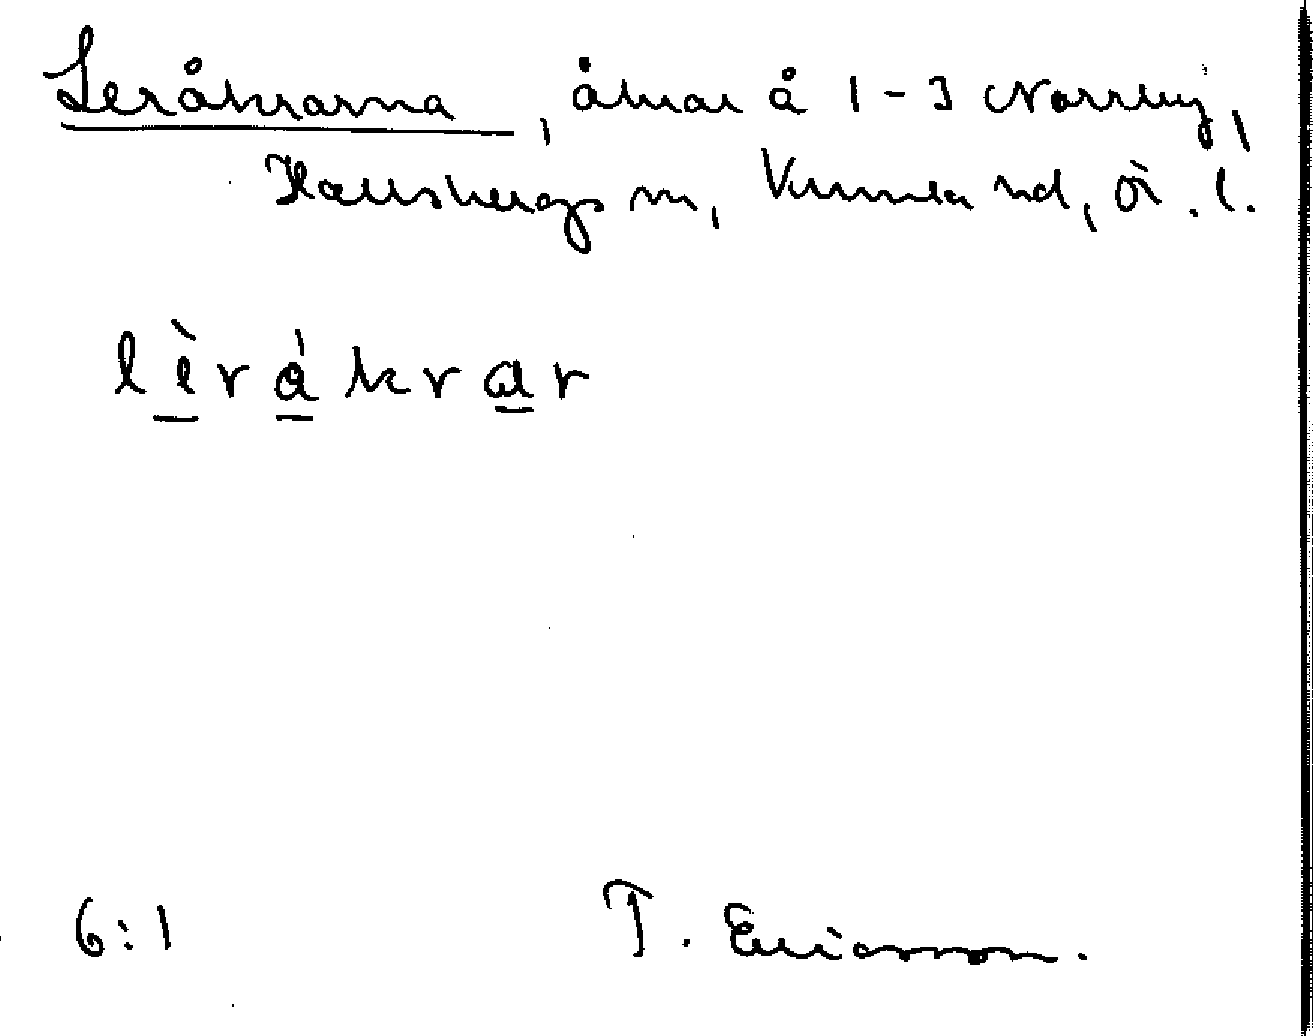 Leråkrarna, åkrar å 1-3 Norrby,
Hallsbergs m, Kumla hd, Ör. l.
lèrákrar
6:1 T. Ericsson.